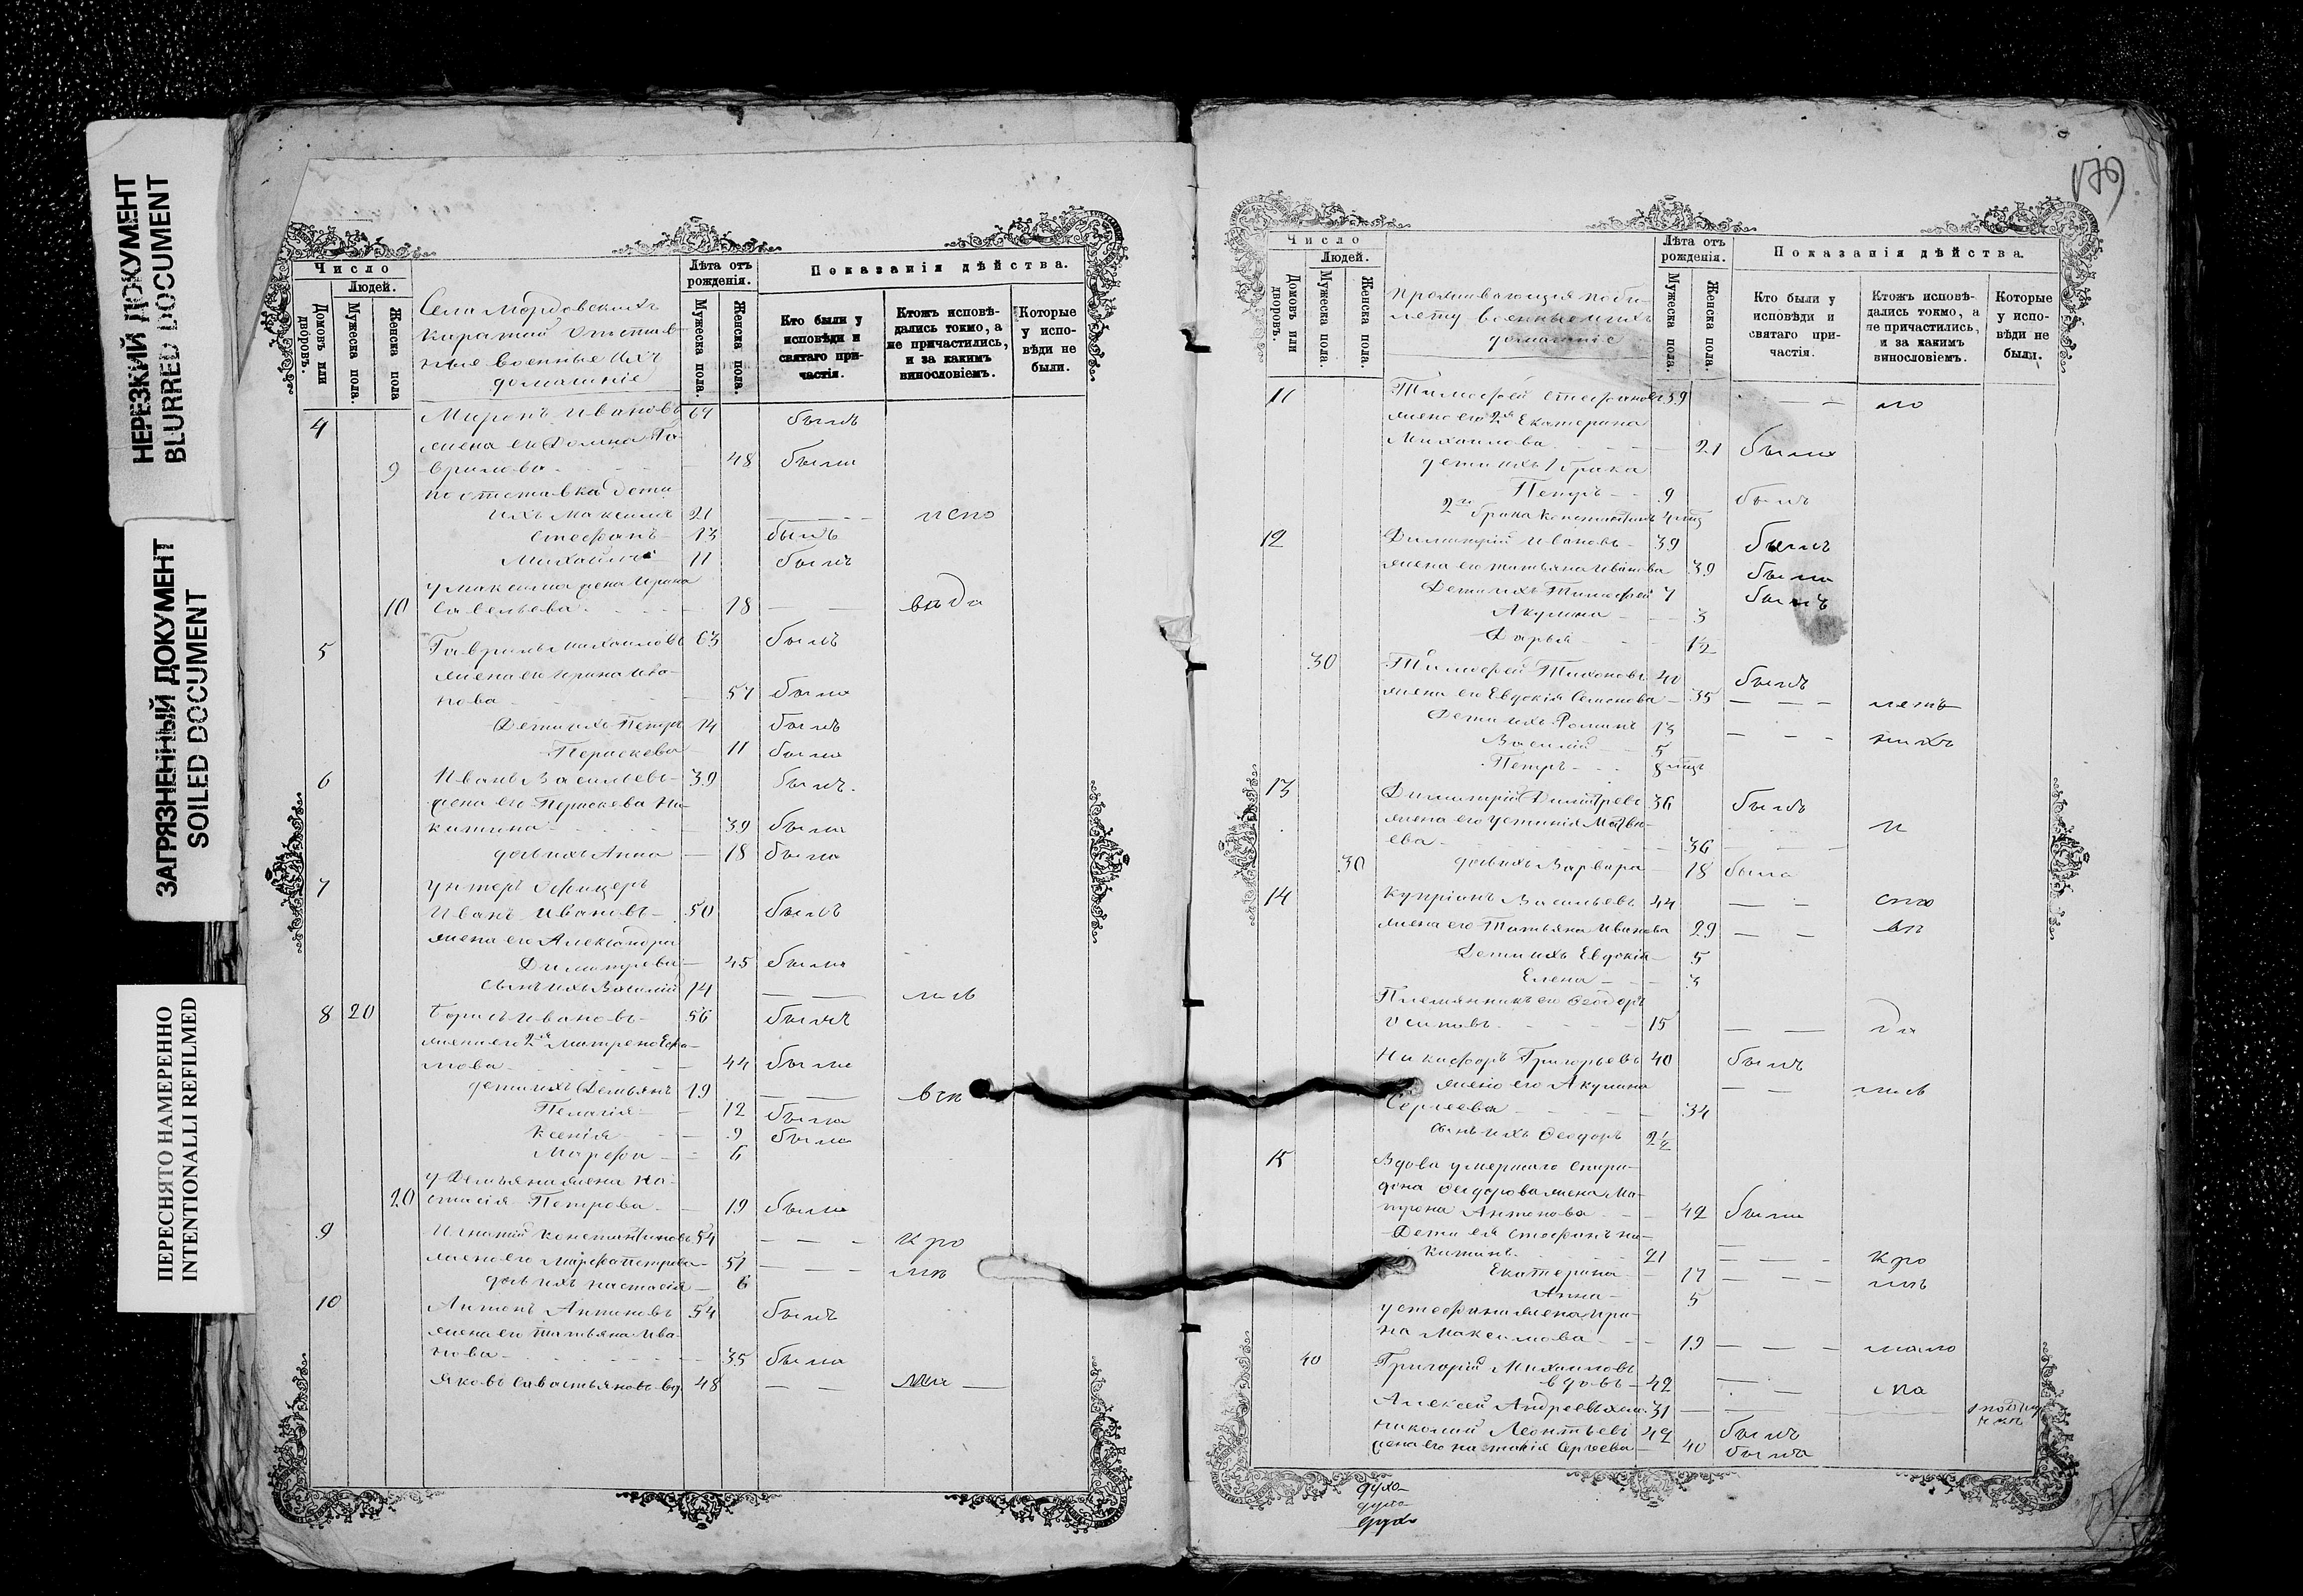 НЕРЕЗКИЙ ДОКУМЕНТ
BLURRED DOCUMENT
ЗАГРЯЗНЕННЫЙ ДОКУМЕНТ
SOILED DOCUMENT
ПЕРЕСНЯТО НАМЕРЕННО
INTENTIONALLI REFILMED
Число
Людей.
Домовъ или дворовъ.
Мужеска пола.
Женска пола
Села Мордовскихъ
каратай Отстав-
ные военные ихъ
домашніе
Лѣта отъ рожденія.
Мужеска пола.
Женска пола.
Показанія дѣйства.
Кто были у исповѣди и святаго причастія.
Ктожъ исповѣдались токмо, а не причастились, и за какимъ винословіемъ.
Которые у исповѣди не были.
4 Миронъ Ивановъ 67 былъ
жена его Домна Га-
9 врилова 48 была
по отставкѣ дети
ихъ Максимъ 21 испо
Стефанъ 13 былъ
Михаилъ 11 былъ
у Максима жена Ирина
10 Савельева 18
5 Гаврилъ Михаиловъ 63 былъ
жена его Ирина Ива-
нова 57 была
Дети ихъ Петръ 14 былъ
Параскева 11 была
6 Иванъ Васильевъ 39 былъ
жена его Параскева Ни-
китина 39 была
дочь ихъ Анна 18 была
7 Унтеръ Офицеръ
Иванъ Ивановъ 50 былъ
жена его Александра
Димитрева 45 была
сынъ ихъ Василій 14
8 20 Борисъ Ивановъ 56 былъ
жена его 2я Матрена Еѳи-
мова 44 была
дети ихъ Демьянъ 19
Пелагія 12 была
Ксенія 9 была
Марѳа 6
у Демьяна жена На-
20 стасія Петрова 19 была
9 Игнатій Константиновъ 54 кро
жена его Марфа Петрова 51
дочь ихъ Настасія 6
10 Антонъ Антоновъ 54 былъ
жена его Татьяна Ива-
нова 35 была
Яковъ Савастьяновъ вд. 48
179
Число
Людей.
Домовъ или дворовъ.
Мужеска пола.
Женска пола.
Проживающия по би-
лету военные и ихъ
домашніе
Лѣта отъ рожденія.
Мужеска пола.
Женска пола.
Показанія дѣйства.
Кто были у исповѣди и святаго причастія.
Ктожъ исповѣдались токмо, а не причастились, и за какимъ винословіемъ.
Которые у исповѣди не были.
11 Тимофей Стефановъ 39
жена его 2я Екатерина
Михаилова 21 была
дети ихъ 1 брака
Петръ 9 былъ
2го брака Константинъ
12 Димитрій Ивановъ 39 былъ
жена его Татьяна Иванова 39 была
Дети ихъ Тимофей 7 былъ
Акулина 3
Дарья 1/2
30 Тимофей Тихоновъ 40 былъ
жена его Евдокія Семенова 35
Дети ихъ Романъ 13
Василій 5
Петръ 8
13 Димитрій Димитрев 36 былъ
жена его Устинія Матве-
ева 36
30 дочь ихъ Варвара 18 была
14 Купріанъ Васильевъ 44
жена его Татьяна Иванова 29
Дети ихъ Евдокія 5
Елена 3
Племянникъ его Ѳеодоръ
Осиповъ 15
Никифоръ Григорьевъ 40 былъ
жена его Акулина
Сергеева 34
сынъ ихъ Ѳеодоръ 2 1/2
15 Вдова умершаго Спири-
дона Ѳедорова жена Ма-
трона Антонова 42 была
Дети ея Стефанъ Ни-
китинъ 21 кро
Екатерина 17
Анна 5
у Стефана жена Ири-
на Максимова 19
40 Григорій Михаиловъ
вдовъ 42
Алексей Андреевъ 31
Николай Леонтьевъ 42 былъ
жена его Настасія Сергеева 40 была
духо-
духо-
духо-